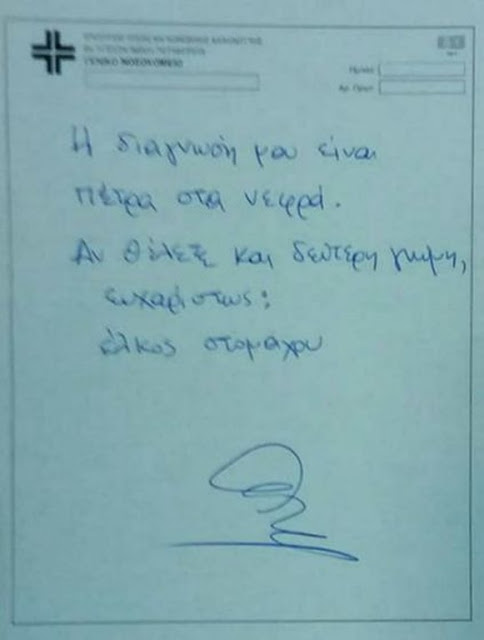 ΓΕΝΙΚΟ ΝΟΣΟΚΟΜΕΙΟ
Η διαγνωσή μου είναι
πέτρα στα νεφρά.
Αν θέλετε και δεύτερη γνώμη,
ευχαρίστως:
έλκος στομάχου